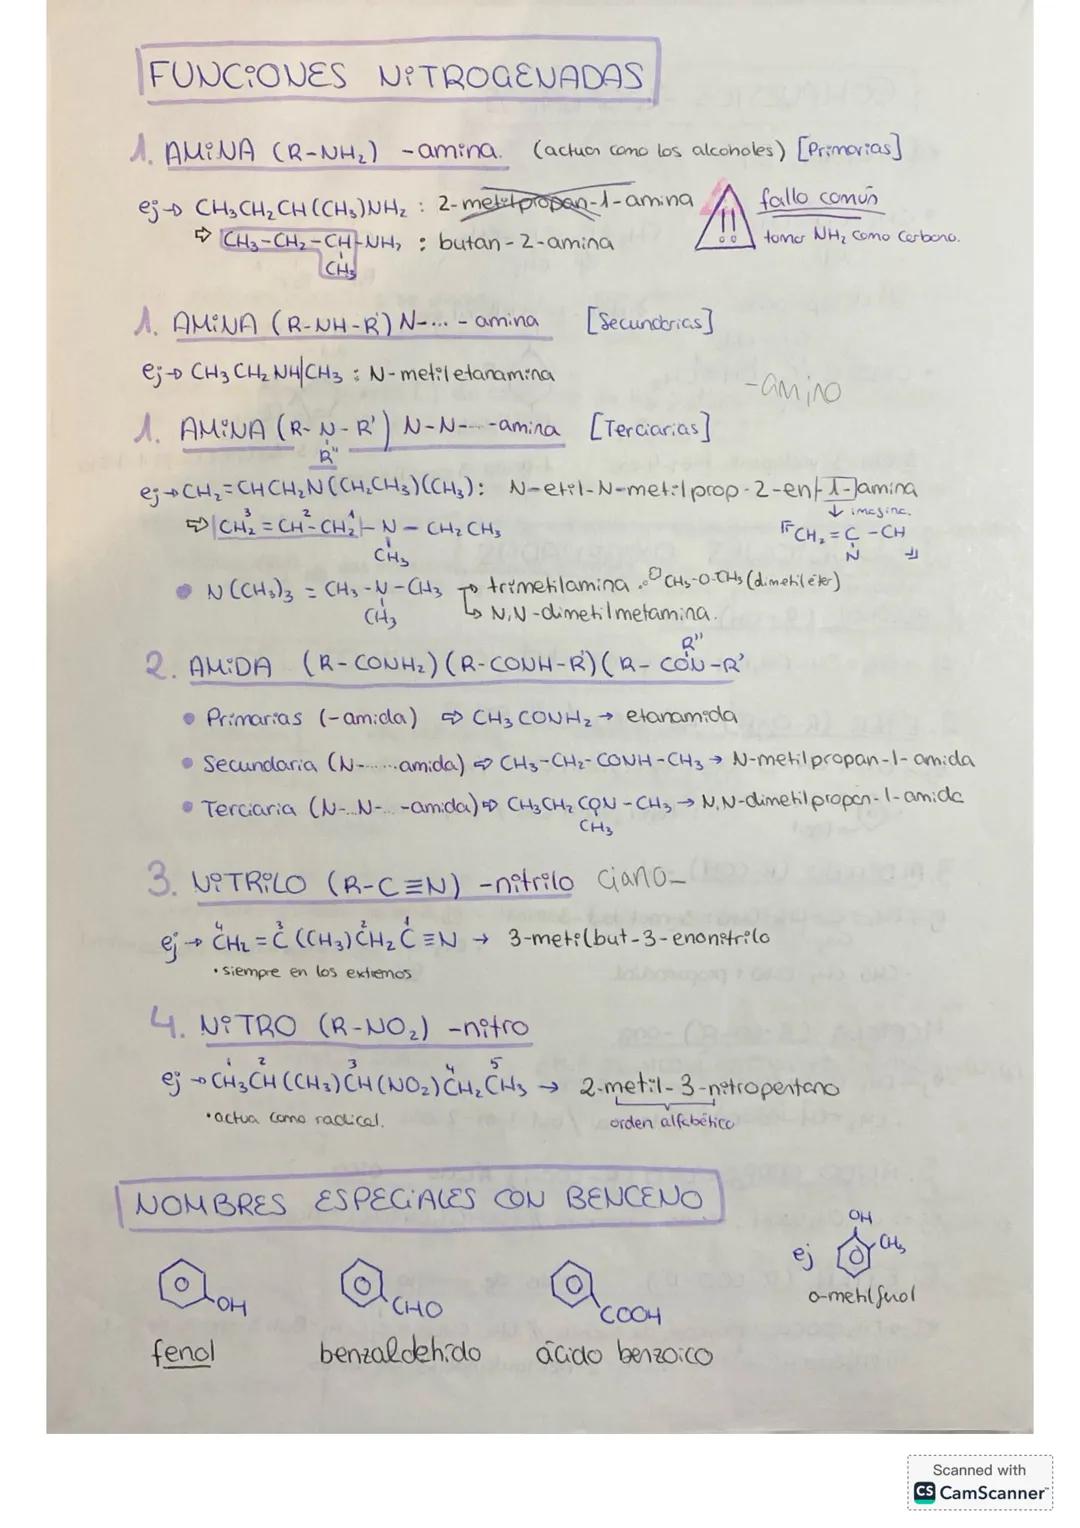 FUNCIONES NITROGENADAS
1. AMINA (R-NH₂) -amina. (actuan como los alcoholes) [Primarias]
ej→ CH₃CH₂CH(CH₃)NH₂ : 2-metilpropan-1-amina
fallo común
⇨ CH₃-CH₂-CH-NH₂ : butan-2-amina
tomar NH₂ como carbono.
CH₃
1. AMINA (R-NH-R') N-... -amina [Secundarias]
ej→ CH₃CH₂NH|CH₃ : N-metiletanamina
-amino
1. AMINA (R-N-R') N-N-...-amina [Terciarias]
R"
ej→CH₂=CHCH₂N(CH₂CH₃)(CH₃): N-etil-N-metilprop-2-en-1-amina
↓ imagina.
3 2 1
⇨ CH₂=CH-CH₂-N-CH₂CH₃
CH₃
CH₂=C-CH
N
• N(CH₃)₃ = CH₃-N-CH₃ → trimetilamina. CH₃-O-CH₃ (dimetiléter)
CH₃ ↳ N,N-dimetilmetamina.
R"
2. AMIDA (R-CONH₂)(R-CONH-R')(R-CON-R'
• Primarias (-amida) ⇨ CH₃CONH₂ → etanamida
• Secundaria (N-......amida) ⇨ CH₃-CH₂-CONH-CH₃ → N-metilpropan-1-amida
• Terciaria (N-...N-...-amida) ⇨ CH₃CH₂CON-CH₃ → N,N-dimetilpropan-1-amida
CH₃
3. NITRILO (R-C≡N) -nitrilo ciano-
4 3 2 1
ej→ CH₂=C(CH₃)CH₂C≡N → 3-metilbut-3-enonitrilo
• siempre en los extremos
4. NITRO (R-NO₂) -nitro
1 2 3 4 5
ej→CH₃CH(CH₃)CH(NO₂)CH₂CH₃ → 2-metil-3-nitropentano
• actua como radical.
orden alfabético
NOMBRES ESPECIALES CON BENCENO
OH
ej CH₃
OH CHO COOH
o-metilfenol
fenol benzaldehido ácido benzoico
Scanned with
CS CamScanner™